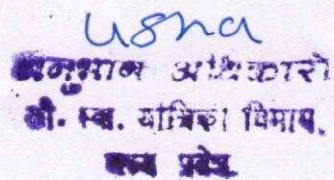 Usha
अनुभाग अधिकारी
लो. स्वा. यांत्रिकी विभाग,
मध्य प्रदेश